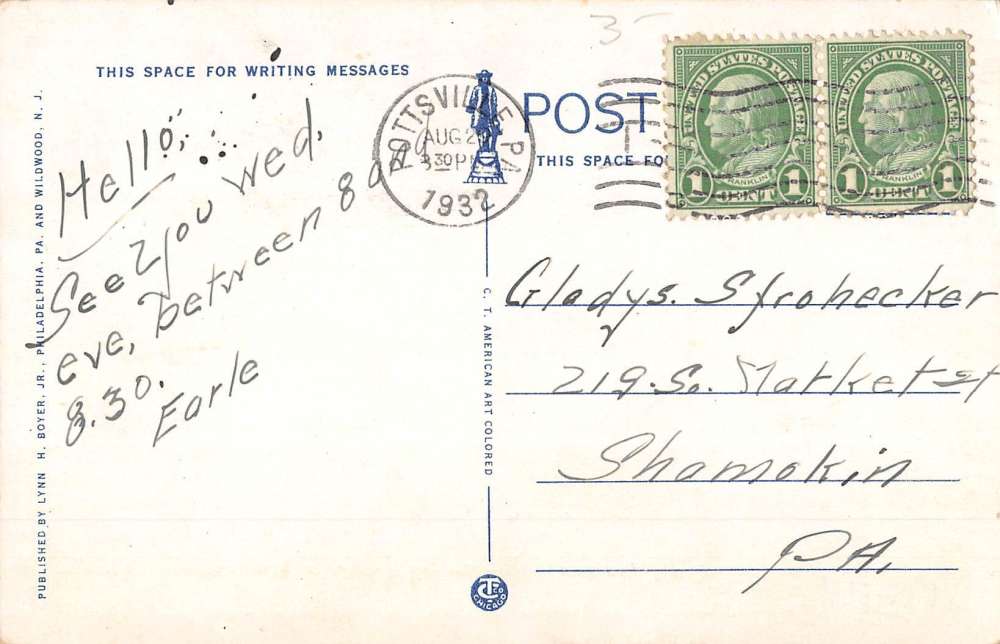 3-
THIS SPACE FOR WRITING MESSAGES
POST
THIS SPACE FO
POTTSVILLE PA.
AUG 2
30 P
1932
UNITED STATES POSTAGE
FRANKLIN
1 1
UNITED STATES POSTAGE
FRANKLIN
1 1
Hello,
See you Wed.
eve, between 8 a
8.30.
Earle
Gladys. Strohecker
219. So. Market st
Shamokin
PA.
PUBLISHED BY LYNN H. BOYER, JR., PHILADELPHIA, PA. AND WILDWOOD, N. J.
C. T. AMERICAN ART COLORED
CHICAGO